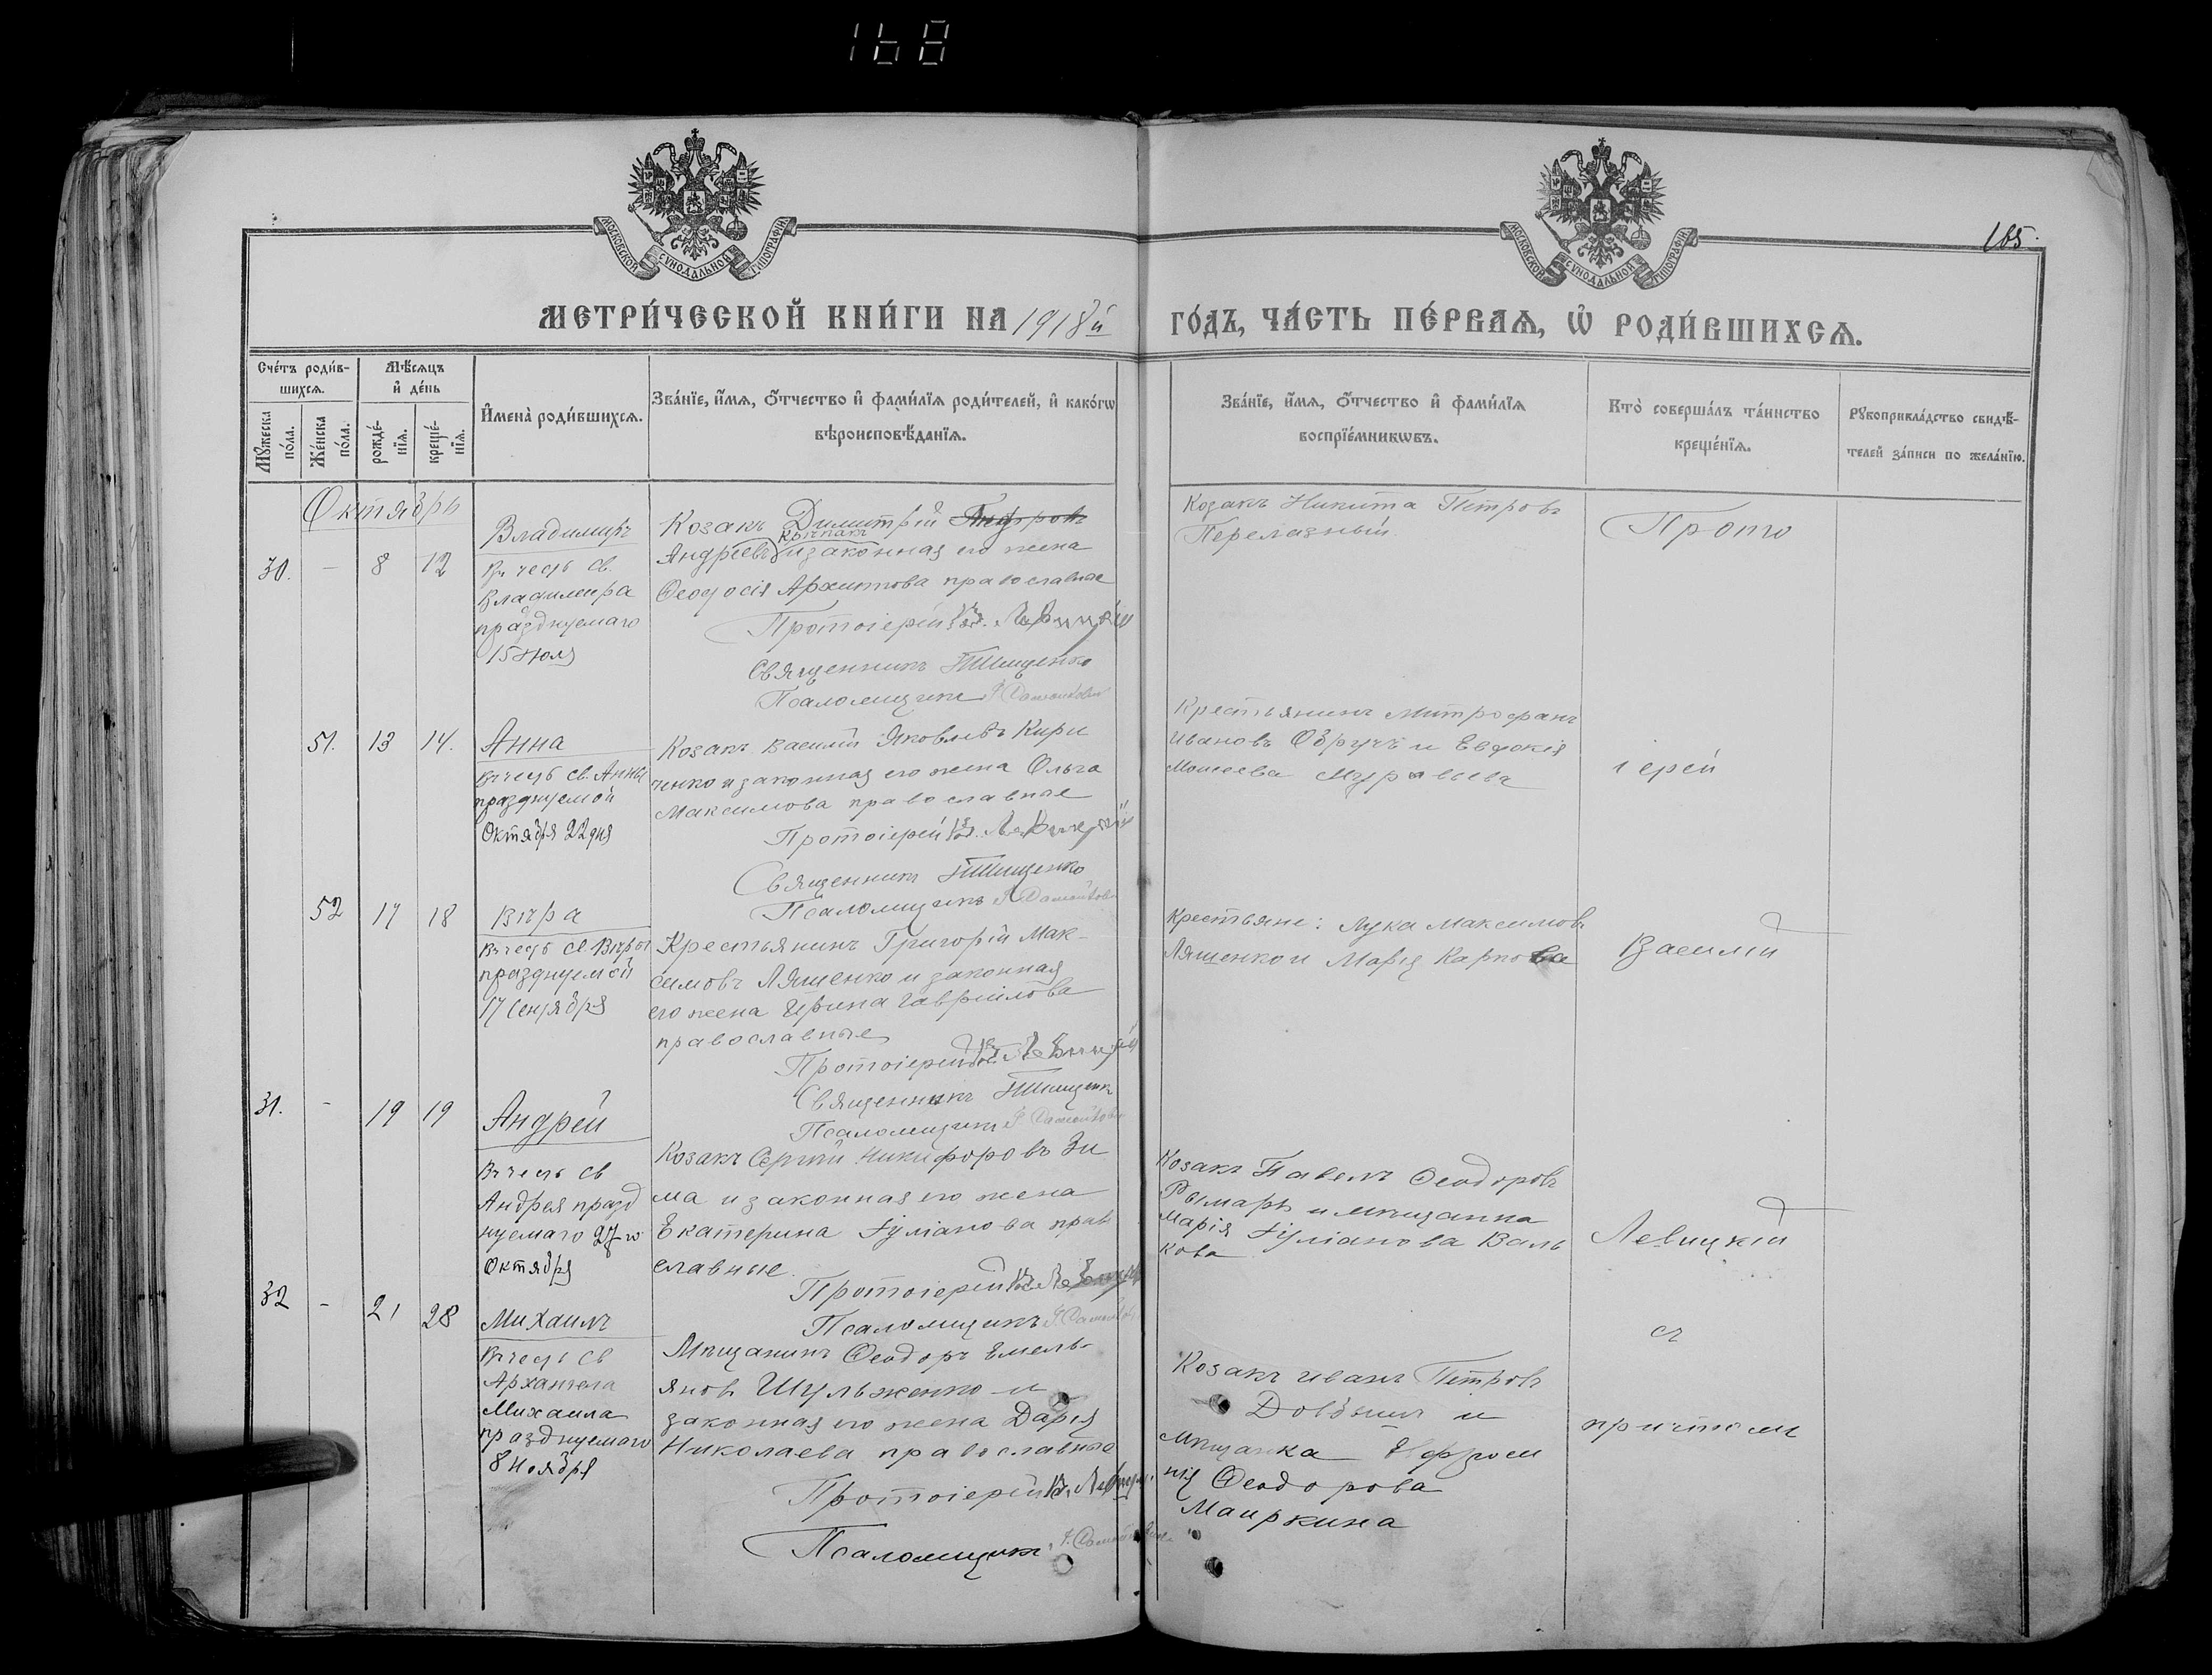 168
МОСКОВСКОЙ СѴНОДАЛЬНОЙ ТИПОГРАФІИ
МОСКОВСКОЙ СѴНОДАЛЬНОЙ ТИПОГРАФІИ
165.
МЕТРИ́ЧЕСКОЙ КНИ́ГИ НА 1918й
ГО́ДЪ, ЧА́СТЬ ПЕ́РВАѦ, Ѡ҆ РОДИ́ВШИХСѦ.
Сче́тъ роди́в-
шихсѧ.
Мꙋ́жеска
по́ла.
Же́нска
по́ла.
Мѣ́сѧцъ
и҆ де́нь
рожде́-
нїѧ.
креще́-
нїѧ.
И҆мена̀ роди́вшихсѧ.
Зва́нїе, и҆́мѧ, ѻ҆́тчество и҆ фами́лїѧ роди́телей, и҆ како́гѡ
вѣроисповѣ́данїѧ.
Зва́нїе, и҆́мѧ, ѻ҆́тчество и҆ фами́лїѧ
воспрїе́мникѡвъ.
Кто̀ соверша́лъ та́инство
креще́нїѧ.
Рꙋкоприкла́дство свидѣ́-
телей за́писи по жела́нїю.
Октябрь
30.
–
8
12
Владимиръ
Въ честь св.
Владимира
празднуемаго
15 Июля
Козакъ Димитрій
Андреевъ и законная его жена
Ѳеодосія Архипова православные
Протоіерей Вас. Левицкій
Священникъ Тищенко
Псаломщикъ
Козакъ Никита Петровъ
Перелазный
Прото
51.
13
14.
Анна
Въ честь св. Анны
празднуемой
Октября 22 дня
Козакъ Василій Яковлевъ Кири
ченко и законная его жена Ольга
Максимова православные
Протоіерей Вас. Левицкій
Священникъ Тищенко
Псаломщикъ
Крестьянинъ Митрофанъ
Ивановъ Обручъ и Евдокія
Моисеева Муравьева
іерей
52
17
18
Вѣра
Въ честь св. Вѣры
празднуемой
17 Сентября
Крестьянинъ Григорій Мак-
симовъ Ляшенко и законная
его жена Ирина Гавріилова
православные
Протоіерей Вас. Левицкій
Священникъ Тищенк
Псаломщикъ
Крестьяне: Лука Максимовъ
Ляшенко и Марія Карпова
Василій
31.
–
19
19
Андрей
Въ честь св
Андрея празд
нуемаго 27го
Октября
Козакъ Сергій Никифоровъ Зи
ма и законная его жена
Екатерина Іуліанова прав
славные.
Протоіерей Вас. Левицкій
Псаломщикъ
Козакъ Павелъ Ѳеодоровъ
Рымарь и мѣщанка
Марія Іуліанова Валь
кова
Левицкій
32
–
21
28
Михаилъ
Въ честь св
Архангела
Михаила
празднуемаго
8 Ноября
Мѣщанинъ Ѳеодоръ Емель-
яновъ Шульженко и
законная его жена Дарія
Николаева православные
Протоіерей Вас. Левицкій
Псаломщикъ
Козакъ Иванъ Петровъ
Довбышъ и
мѣщанка Ефроси
нія Ѳеодорова
Маиркина
съ
причтомъ